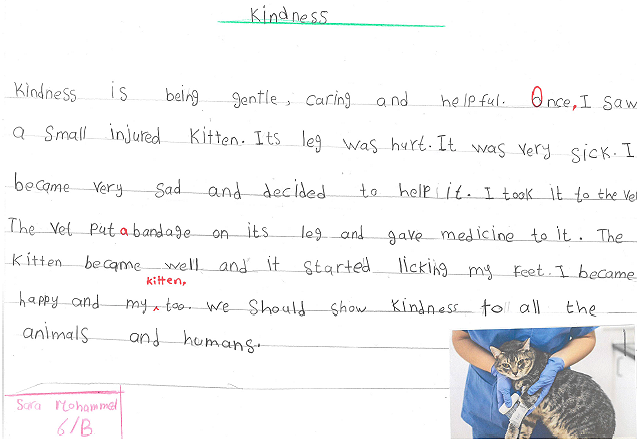 Kindness
Kindness is being gentle, caring and helpful. Once, I saw
a small injured kitten. Its leg was hurt. It was very sick. I
became very sad and decided to help it. I took it to the vet
The vet put a bandage on its leg and gave medicine to it. The
kitten became well and it started licking my feet. I became
kitten,
happy and my ^ too. We should show kindness to all the
animals and humans.
Sara Mohammed
6/B